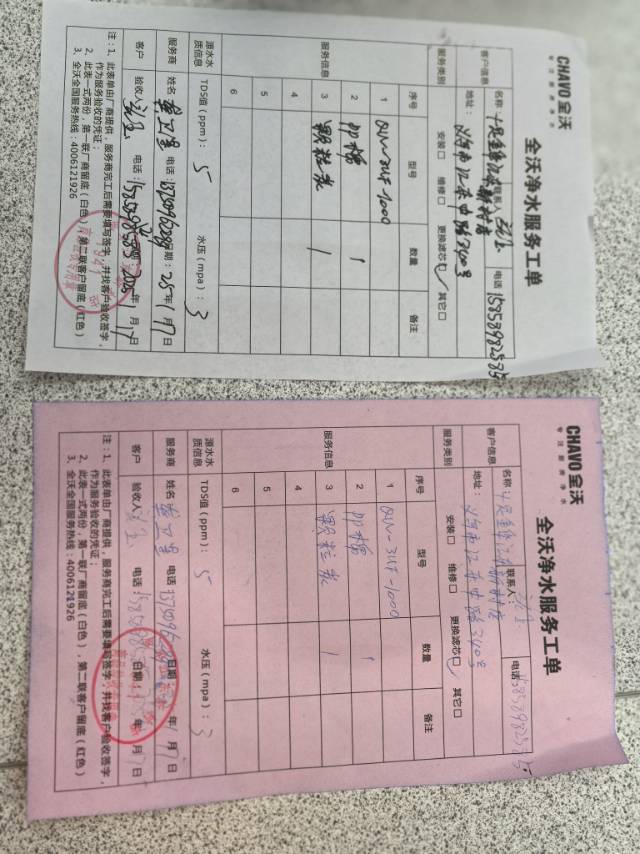 CHAVO全沃
专注厨房净水
全沃净水服务工单
客户信息 名称: 联系人 电话
地址: 义乌市江东中路340号
服务类别 安装□ 维修□ 更换滤芯□✓ 其它□
服务信息 序号 型号 数量 备注
1 QW-3UF-1000
2 PP棉 1
3 颗粒炭 1
4
5
6
源水水质信息 TDS值(ppm): 5 水压(mpa): 3
服务商 姓名 电话 日期: 25年1月7日
客户 验收人 电话: 日期: 年1月17日
注: 1、此表单由厂商提供,服务商完工后需要填写签字,并找客户验收签字,
作为服务验收的凭证;
2、此表一式两份,第一联厂商留底(白色),第二联客户留底(红色)
3、全沃全国服务热线: 4006121926
CHAVO全沃
专注厨房净水
全沃净水服务工单
客户信息 名称: 联系人 电话
地址: 义乌市江东中路340号
服务类别 安装□ 维修□ 更换滤芯□✓ 其它□
服务信息 序号 型号 数量 备注
1 QW-3UF-1000
2 PP棉 1
3 颗粒炭 1
4
5
6
源水水质信息 TDS值(ppm): 5 水压(mpa): 3
服务商 姓名 电话 日期: 年1月7日
客户 验收人 电话: 日期: 年 月 日
注: 1、此表单由厂商提供,服务商完工后需要填写签字,并找客户验收签字,
作为服务验收的凭证;
2、此表一式两份,第一联厂商留底(白色),第二联客户留底(红色)
3、全沃全国服务热线: 4006121926